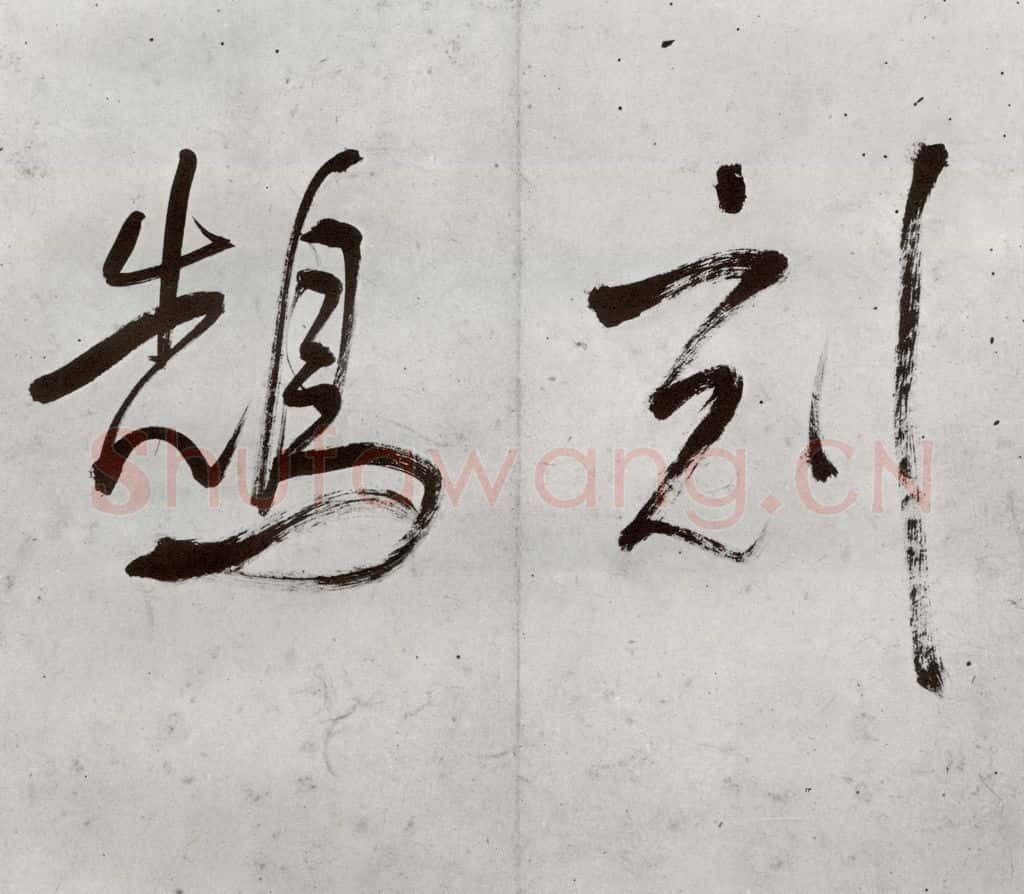 刻
鹄
Shufawang.CN